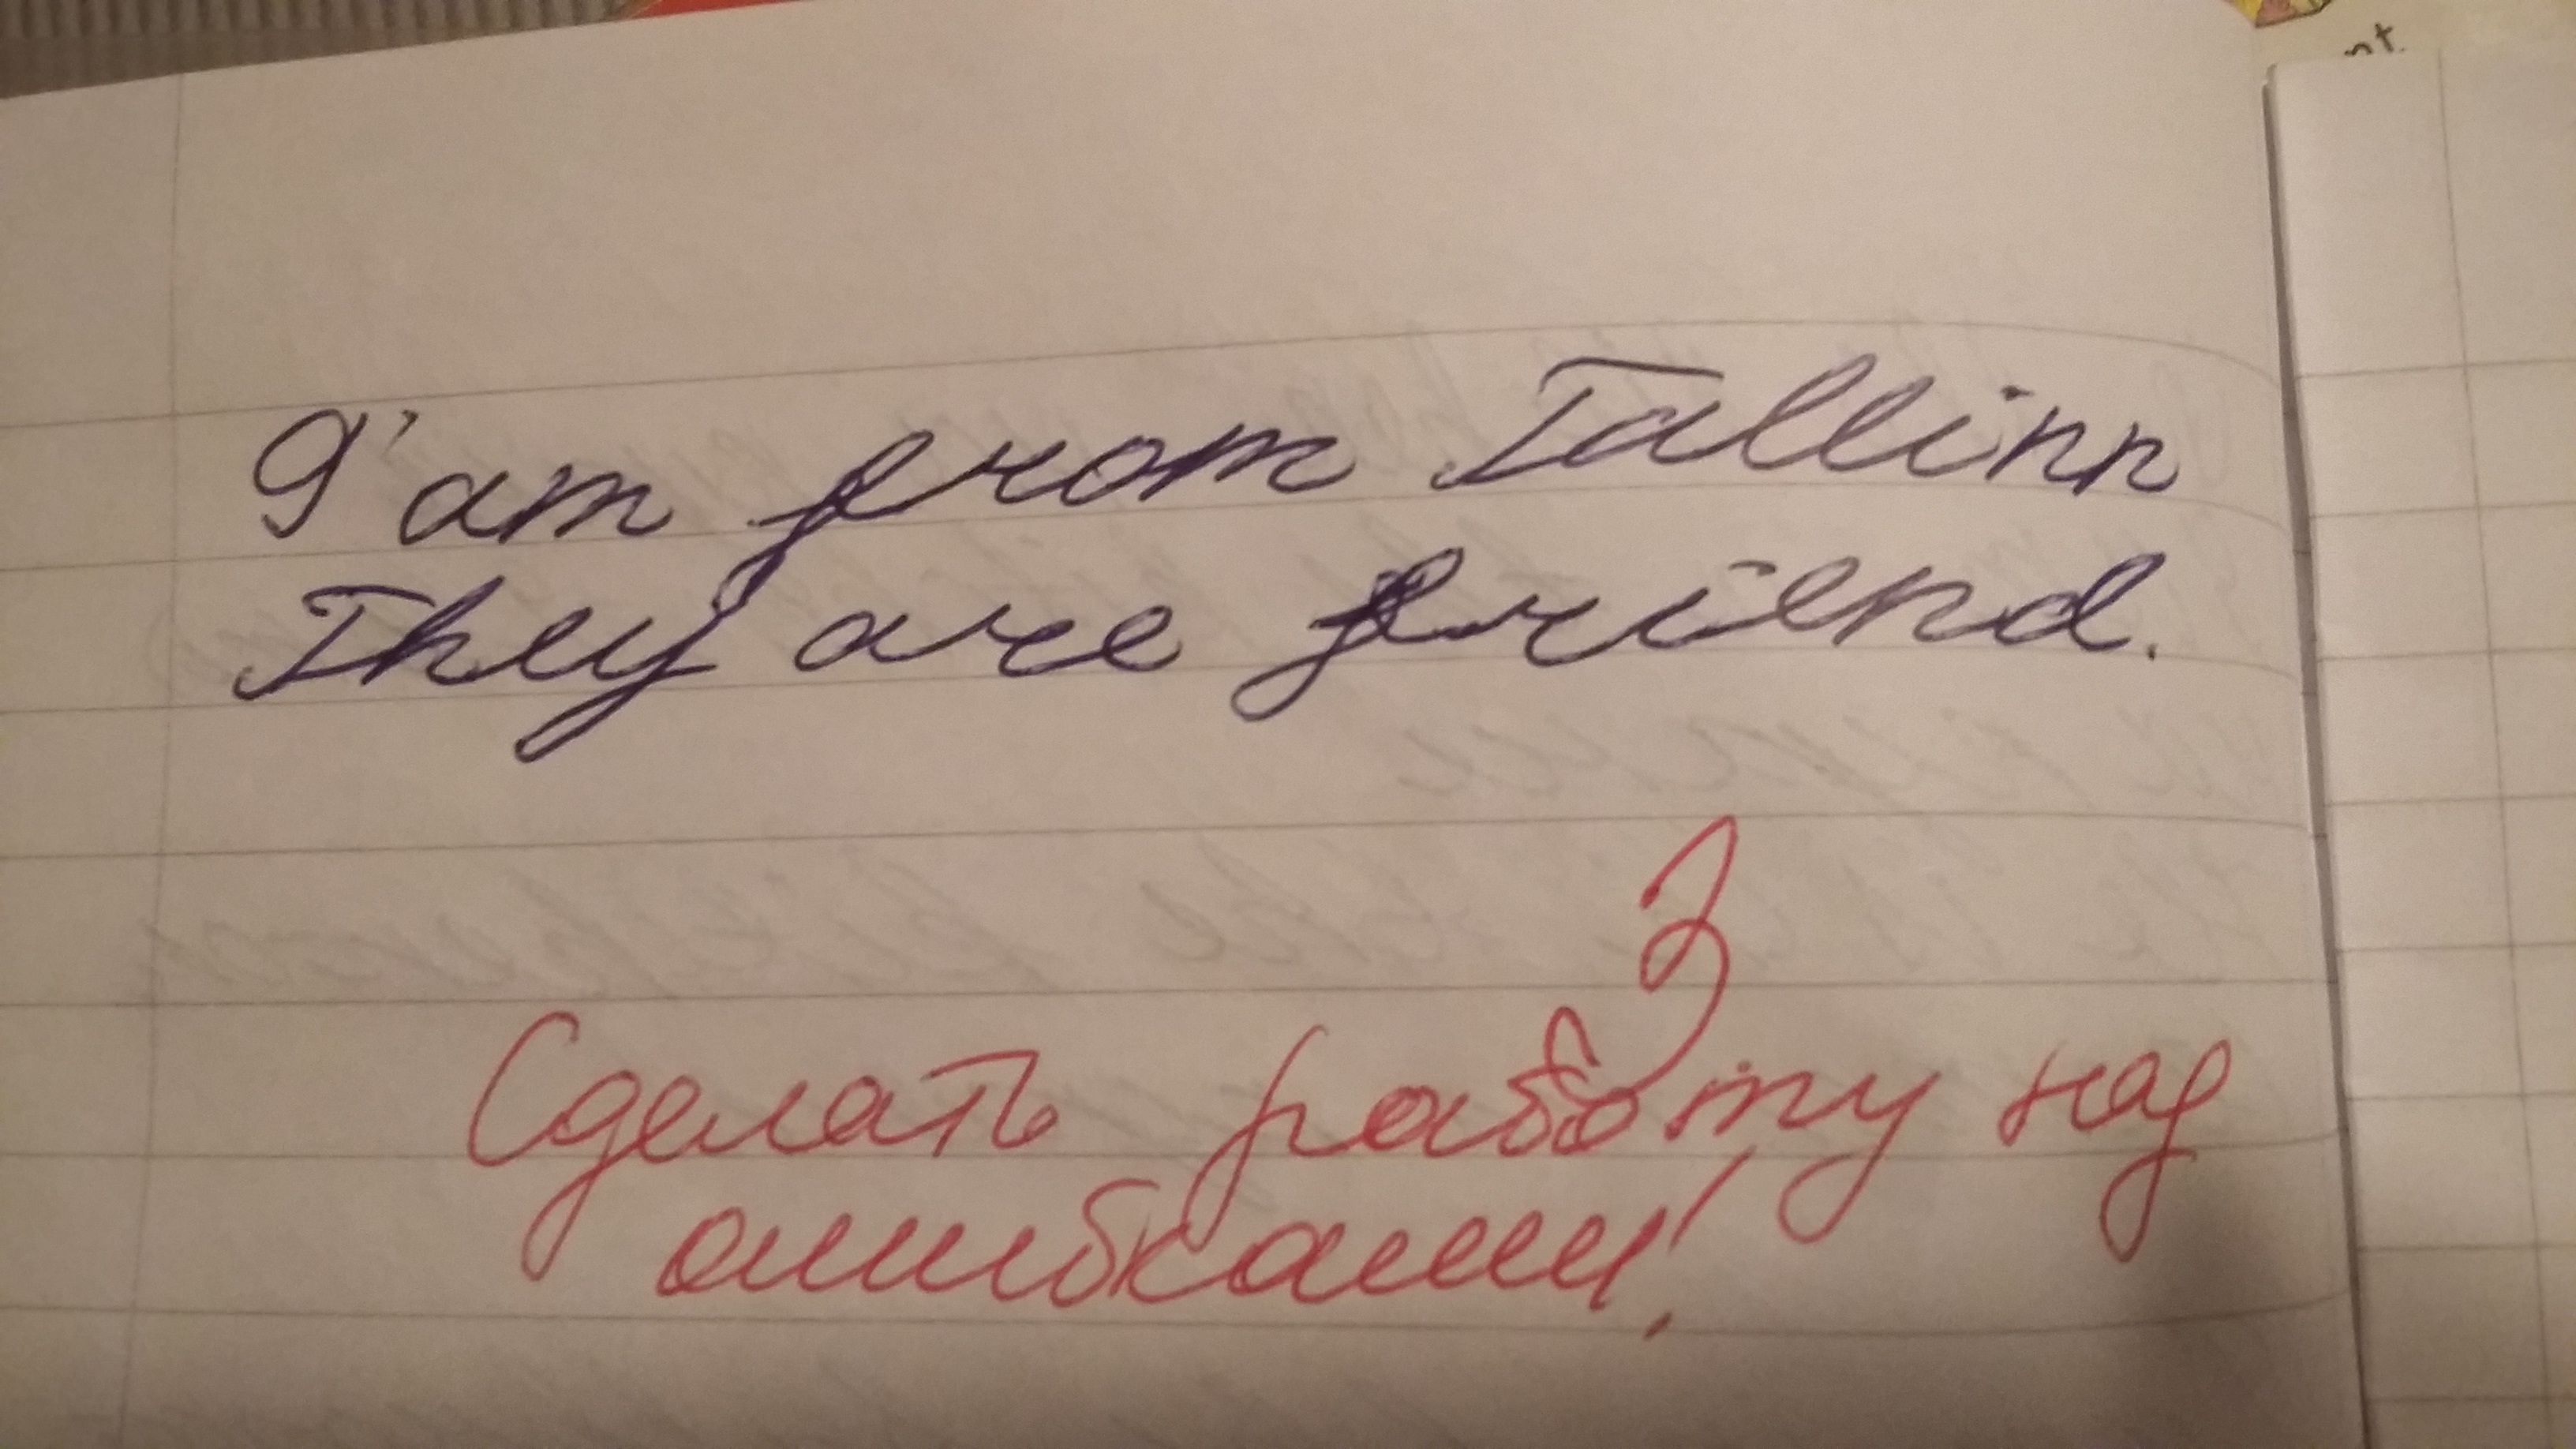 nt.
I'am from Tallinn
They are friend.
3
Сделать работу над
ошибками!